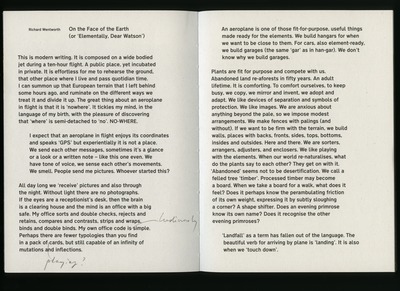 Richard Wentworth
On the Face of the Earth
(or 'Elementally, Dear Watson')
This is modern writing. It is composed on a wide bodied
jet during a ten-hour flight. A public place, yet incubated
in private. It is effortless for me to rehearse the ground,
that other place where I live and pass quotidian time.
I can summon up that European terrain that I left behind
some hours ago, and ruminate on the different ways we
treat it and divide it up. The great thing about an aeroplane
in flight is that it is 'nowhere'. It tickles my mind, in the
language of my birth, with the pleasure of discovering
that 'where' is semi-detached to 'no'. NO-WHERE.
I expect that an aeroplane in flight enjoys its coordinates
and speaks 'GPS' but experientially it is not a place.
We send each other messages, sometimes it's a glance
or a look or a written note – like this one even. We
have tone of voice, we sense each other's movements.
We smell. People send me pictures. Whoever started this?
All day long we 'receive' pictures and also through
the night. Without light there are no photographs.
If the eyes are a receptionist's desk, then the brain
is a clearing house and the mind is an office with a big
safe. My office sorts and double checks, rejects and
retains, compares and contrasts, strips and wraps,
binds and double binds. My own office code is simple.
Perhaps there are fewer typologies than you find
in a pack of cards, but still capable of an infinity of
mutations and inflections.
playing?
An aeroplane is one of those fit-for-purpose, useful things
made ready for the elements. We build hangers for when
we want to be close to them. For cars, also element-ready,
we build garages (the same 'gar' as in han-gar). We don't
know why we build garages.
Plants are fit for purpose and compete with us.
Abandoned land re-forests in fifty years. An adult
lifetime. It is comforting. To comfort ourselves, to keep
busy, we copy, we mirror and invent, we adopt and
adapt. We like devices of separation and symbols of
protection. We like images. We are anxious about
anything beyond the pale, so we impose modest
arrangements. We make fences with palings (and
without). If we want to be firm with the terrain, we build
walls, places with backs, fronts, sides, tops, bottoms,
insides and outsides. Here and there. We are sorters,
arrangers, adjusters, and enclosers. We like playing
with the elements. When our world re-naturalises, what
do the plants say to each other? They get on with it.
'Abandoned' seems not to be desertification. We call a
felled tree 'timber'. Processed timber may become
a board. When we take a board for a walk, what does it
feel? Does it perhaps know the perambulating friction
of its own weight, expressing it by subtly sloughing
a corner? A shape shifter. Does an evening primrose
know its own name? Does it recognise the other
evening primroses?
'Landfall' as a term has fallen out of the language. The
beautiful verb for arriving by plane is 'landing'. It is also
when we 'touch down'.